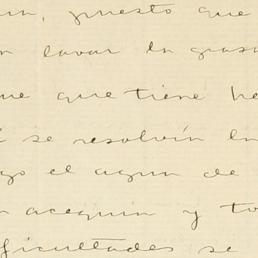 puesto que
lavar la grasa
que tiene he
se resolvía la
go el agua de
acequia y to
ficultades se